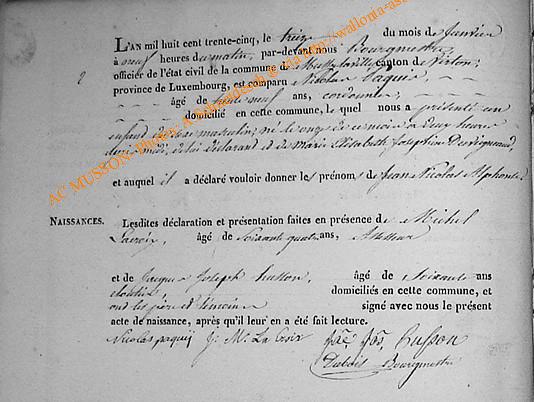 L'AN mil huit cent trente-cinq, le treize du mois de Janvier
à neuf heures du matin, par-devant nous Bourgmestre
officier de l'état civil de la commune de canton de Virton,
province de Luxembourg, est comparu Nicolas Paquis
âgé de trente neuf ans, cordonnier
domicilié en cette commune, le quel nous a présenté un
enfant du sexe masculin, né le onze de ce mois à deux heures
midi, de lui déclarant et de Marie Elisabeth Josephine
et auquel il a déclaré vouloir donner les prénoms de Jean Nicolas Alphonse.
2
NAISSANCES.
Lesdites déclaration et présentation faites en présence de Michel
Lacroix, âgé de Soixante quatre ans,
et de Jacques Joseph Husson, âgé de Soixante ans
cloutier, domiciliés en cette commune, et
ont les père et témoins signé avec nous le présent
acte de naissance, après qu'il leur en a été fait lecture.
Nicolas paquij J. M. La Croix Jac Jos husson
Dubois Bourgmestre
AC MUSSON- Photos: A. @ http://wallonia-as